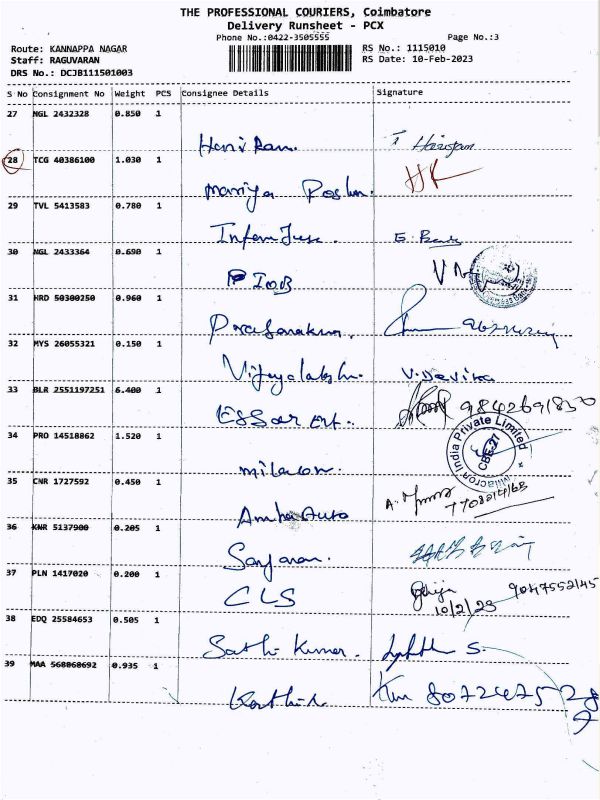 THE PROFESSIONAL COURIERS, Coimbatore
Delivery Runsheet - PCX
Phone No.:0422-3505555 Page No.:3
Route: KANNAPPA NAGAR RS No.: 1115010
Staff: RAGUVARAN RS Date: 10-Feb-2023
DRS No.: DCJB111501003
S No Consignment No Weight PCS Consignee Details Signature
27 NGL 2432328 0.850 1
Hari Ram.
28 TCG 40386100 1.030 1
Mariya
29 TVL 5413583 0.780 1
30 NGL 2433364 0.690 1
IOB
31 HRD 50300250 0.960 1
32 MYS 26055321 0.150 1
Vijayalakshmi V. Devika
33 BLR 2551197251 6.400 1
Essar Ent. 9842691830
34 PRO 14518862 1.520 1
Milacron India Private Limited
CBE-27
milacron.
35 CNR 1727592 0.450 1
Auto
36 KNR 5137900 0.205 1
37 PLN 1417020 0.200 1
CLS 9047552145
10/2/23
38 EDQ 25584653 0.505 1
Sathi Kumar.
39 MAA 568068692 0.935 1
Karthik